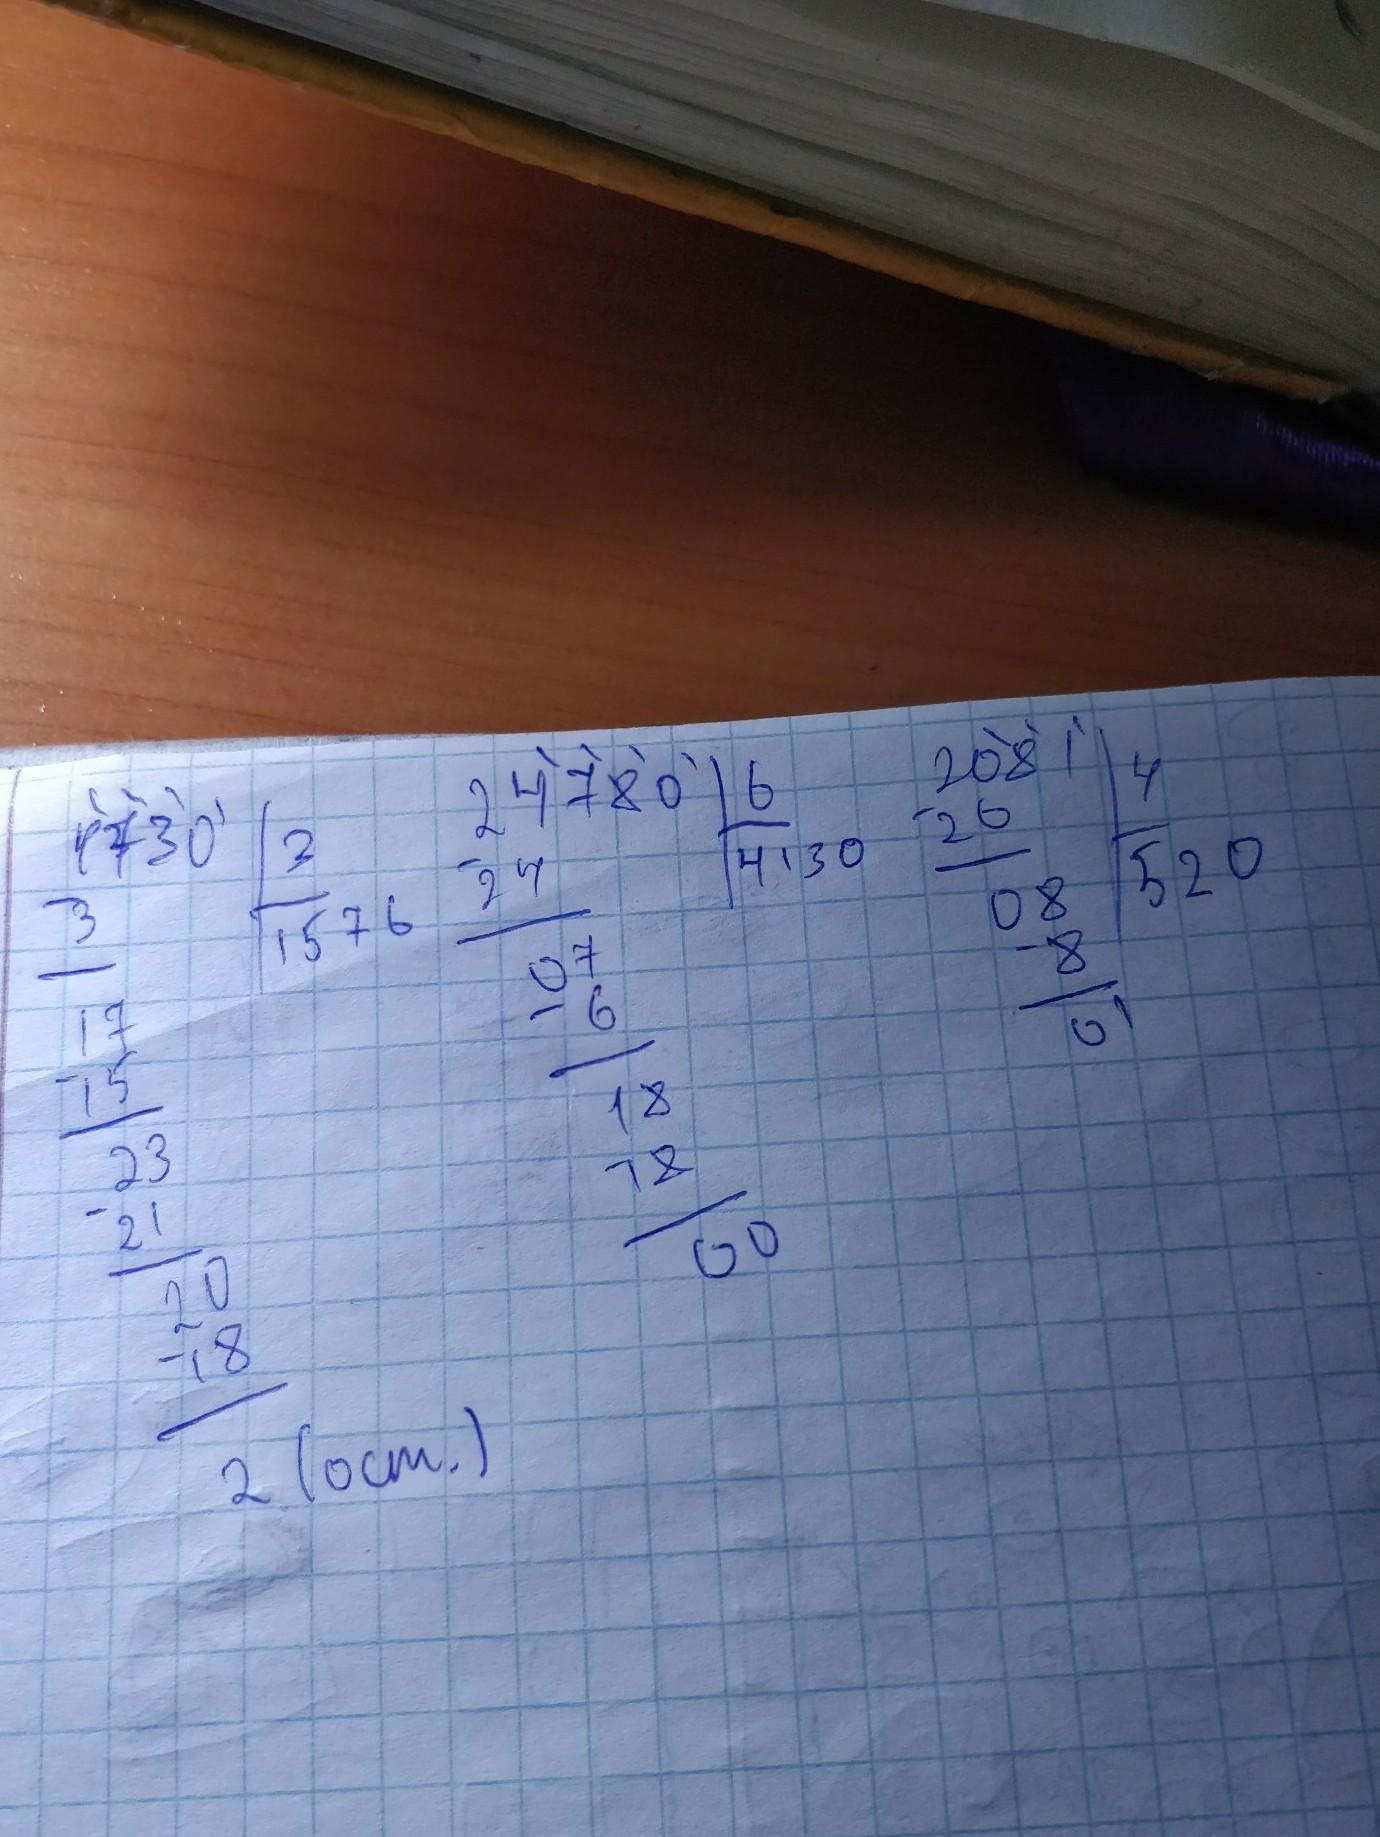 4730 3
3 1576
17
-15
23
-21
20
-18
2 (ост.)
24780 6
-24 4130
07
-6
18
-18
00
2081 4
-20 520
08
-8
01